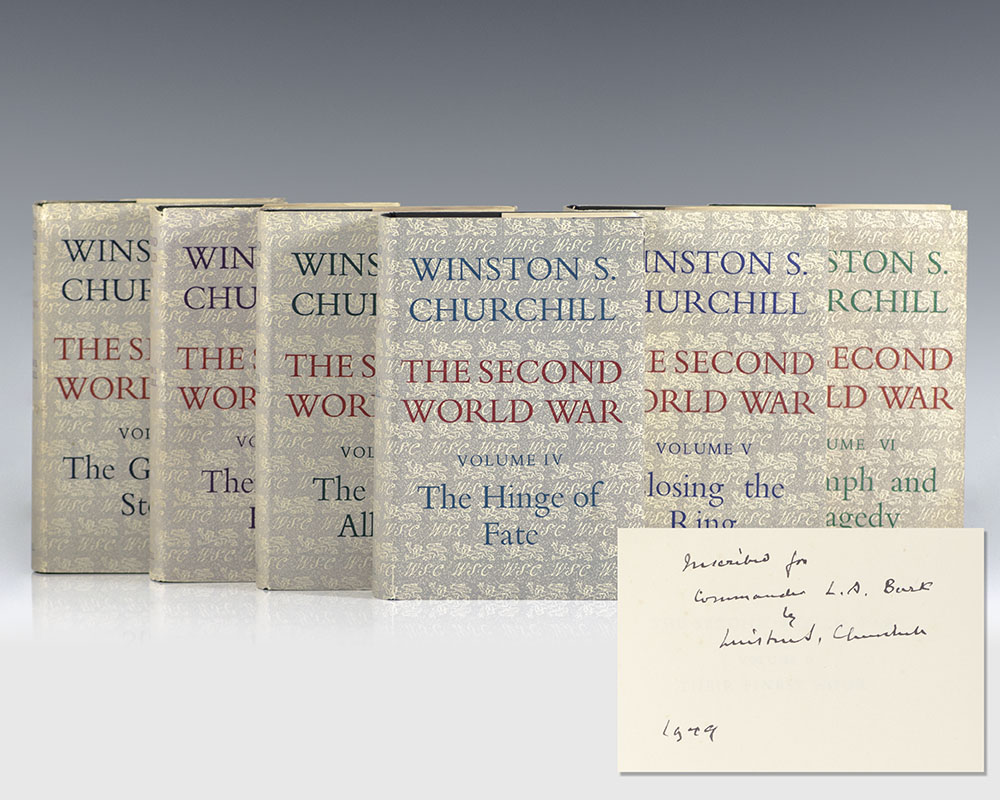 WINS
CHUR
THE SE
WORL
VOL
The G
St
WIN
CHU
THE
WOR
VO
The
WINS
CHUR
THE S
WOR
VOL
The
All
WINSTON S.
CHURCHILL
THE SECOND
WORLD WAR
VOLUME IV
The Hinge of
Fate
INSTON S.
HURCHILL
E SECOND
ORLD WAR
VOLUME V
losing the
Ring
STON S.
RCHILL
ECOND
LD WAR
UME VI
mph and
agedy
Inscribed for
Commander L.S. Burk
by
Winston S. Churchill
1949
THEIR FINEST HOUR